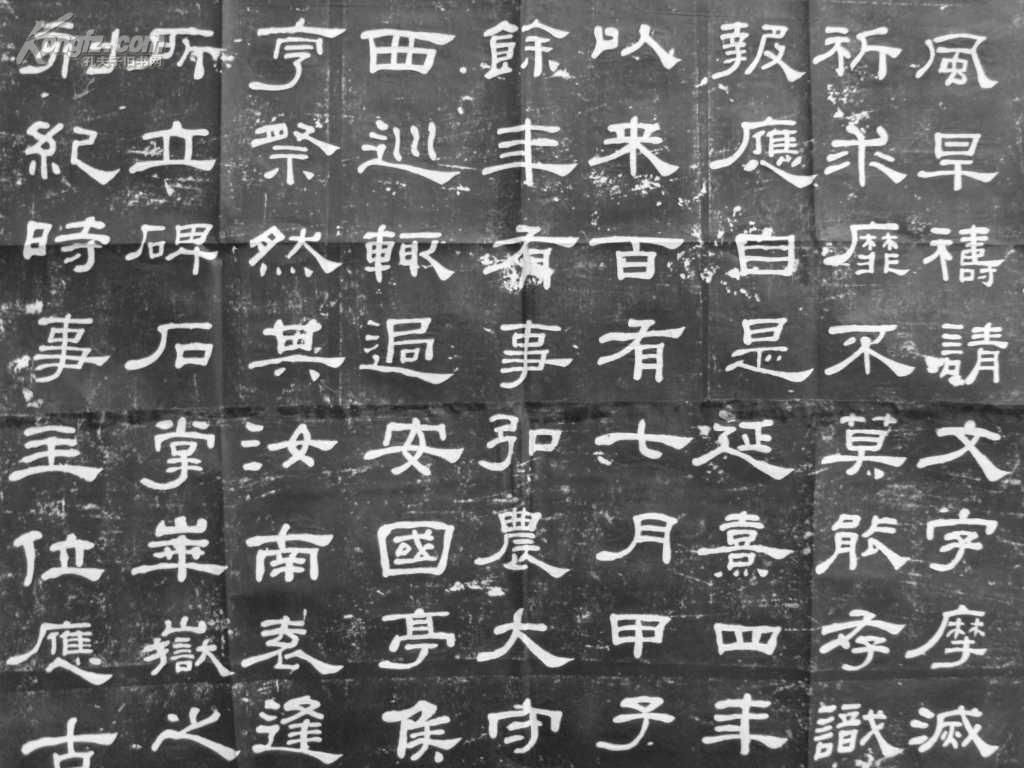 風旱禱請
祈求靡不
報應自是
以来百有
餘年有事
西巡輒過
亨祭然其
所立碑石
刻紀時事
文字摩滅
莫能存識
延熹四年
七月甲子
弘農大守
安國亭侯
汝南袁逢
掌崋嶽之
主位應古
Kongfz.com
孔夫子旧书网